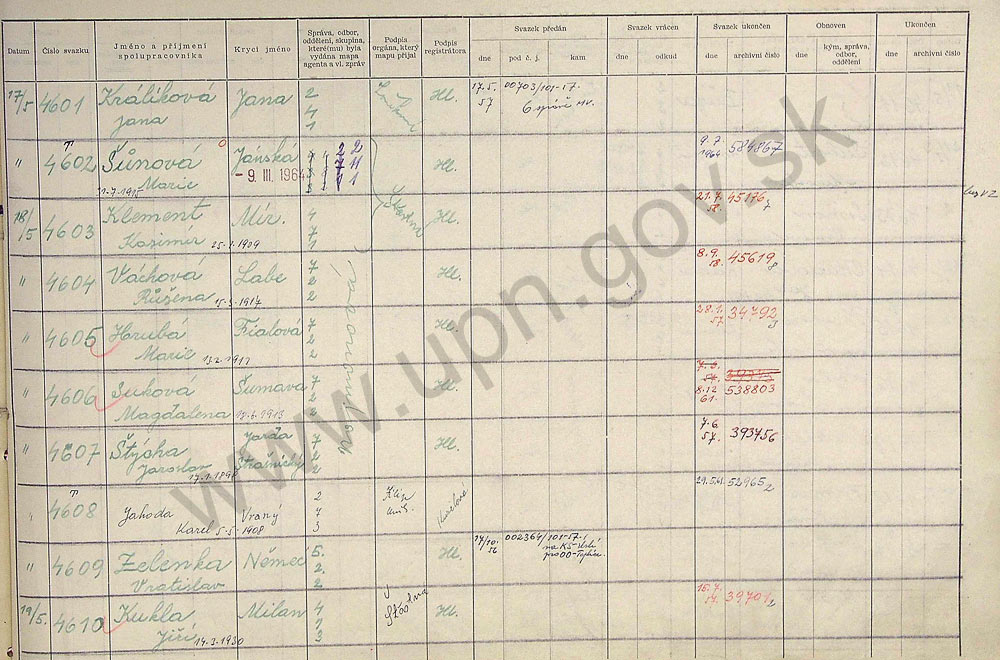 Datum
Číslo svazku
Jméno a příjmení spolupracovníka
Krycí jméno
Správa, odbor, oddělení, skupina, které(mu) byla vydána mapa agenta a vl. zpráv
Podpis orgána, který mapu přijal
Podpis registrátora
Svazek předán
dne
pod č. j.
kam
Svazek vrácen
dne
odkud
Svazek ukončen
dne
archivní číslo
Obnoven
dne
kým, správa, odbor, oddělení
Ukončen
dne
archivní číslo
17/5 4601 Králíková Jana 2 Hl. 17.5. 00703/101-57.
Jana 4 57 6 správě MV.
1
" 4602 Šůnová Jánská Hl. 9.7. 584867
Marie - 9. III. 1964 1964
21.7.1915
18/5 4603 Klement Mír. 4 Hl. 21.7. 45176
Kazimír 25.1.1909 7
1
" 4604 Váchová Labe 7 Hl. 8.9. 45619
Růžena 15.3.1917 2 58. 8
2
" 4605 Hrubá Fialová 7 Hl. 28.1. 34792
Marie 2 57 3
2
" 4606 Suková Šumava 7 Hl.
Magdalena 2 8.12 538803
2 61.
" 4607 Štýcha Jarda 7 Hl. 7.6. 393756
Jaroslav Strašnický 2 57.
17.1.1898 2
" 4608 Jahoda Vraný 2 52965
Karel 5-5-1908 7 2
3
" 4609 Zelenka Němec 5. Hl. 002364/101-57.
Vratislav 2. na KS-Ústí
2 pro OO-Teplice.
19/5. 4610 Kukla Milan 4 Hl. 15.7. 39701
Jiří 14.3.1930 7 57. 2
3
www.upn.gov.sk